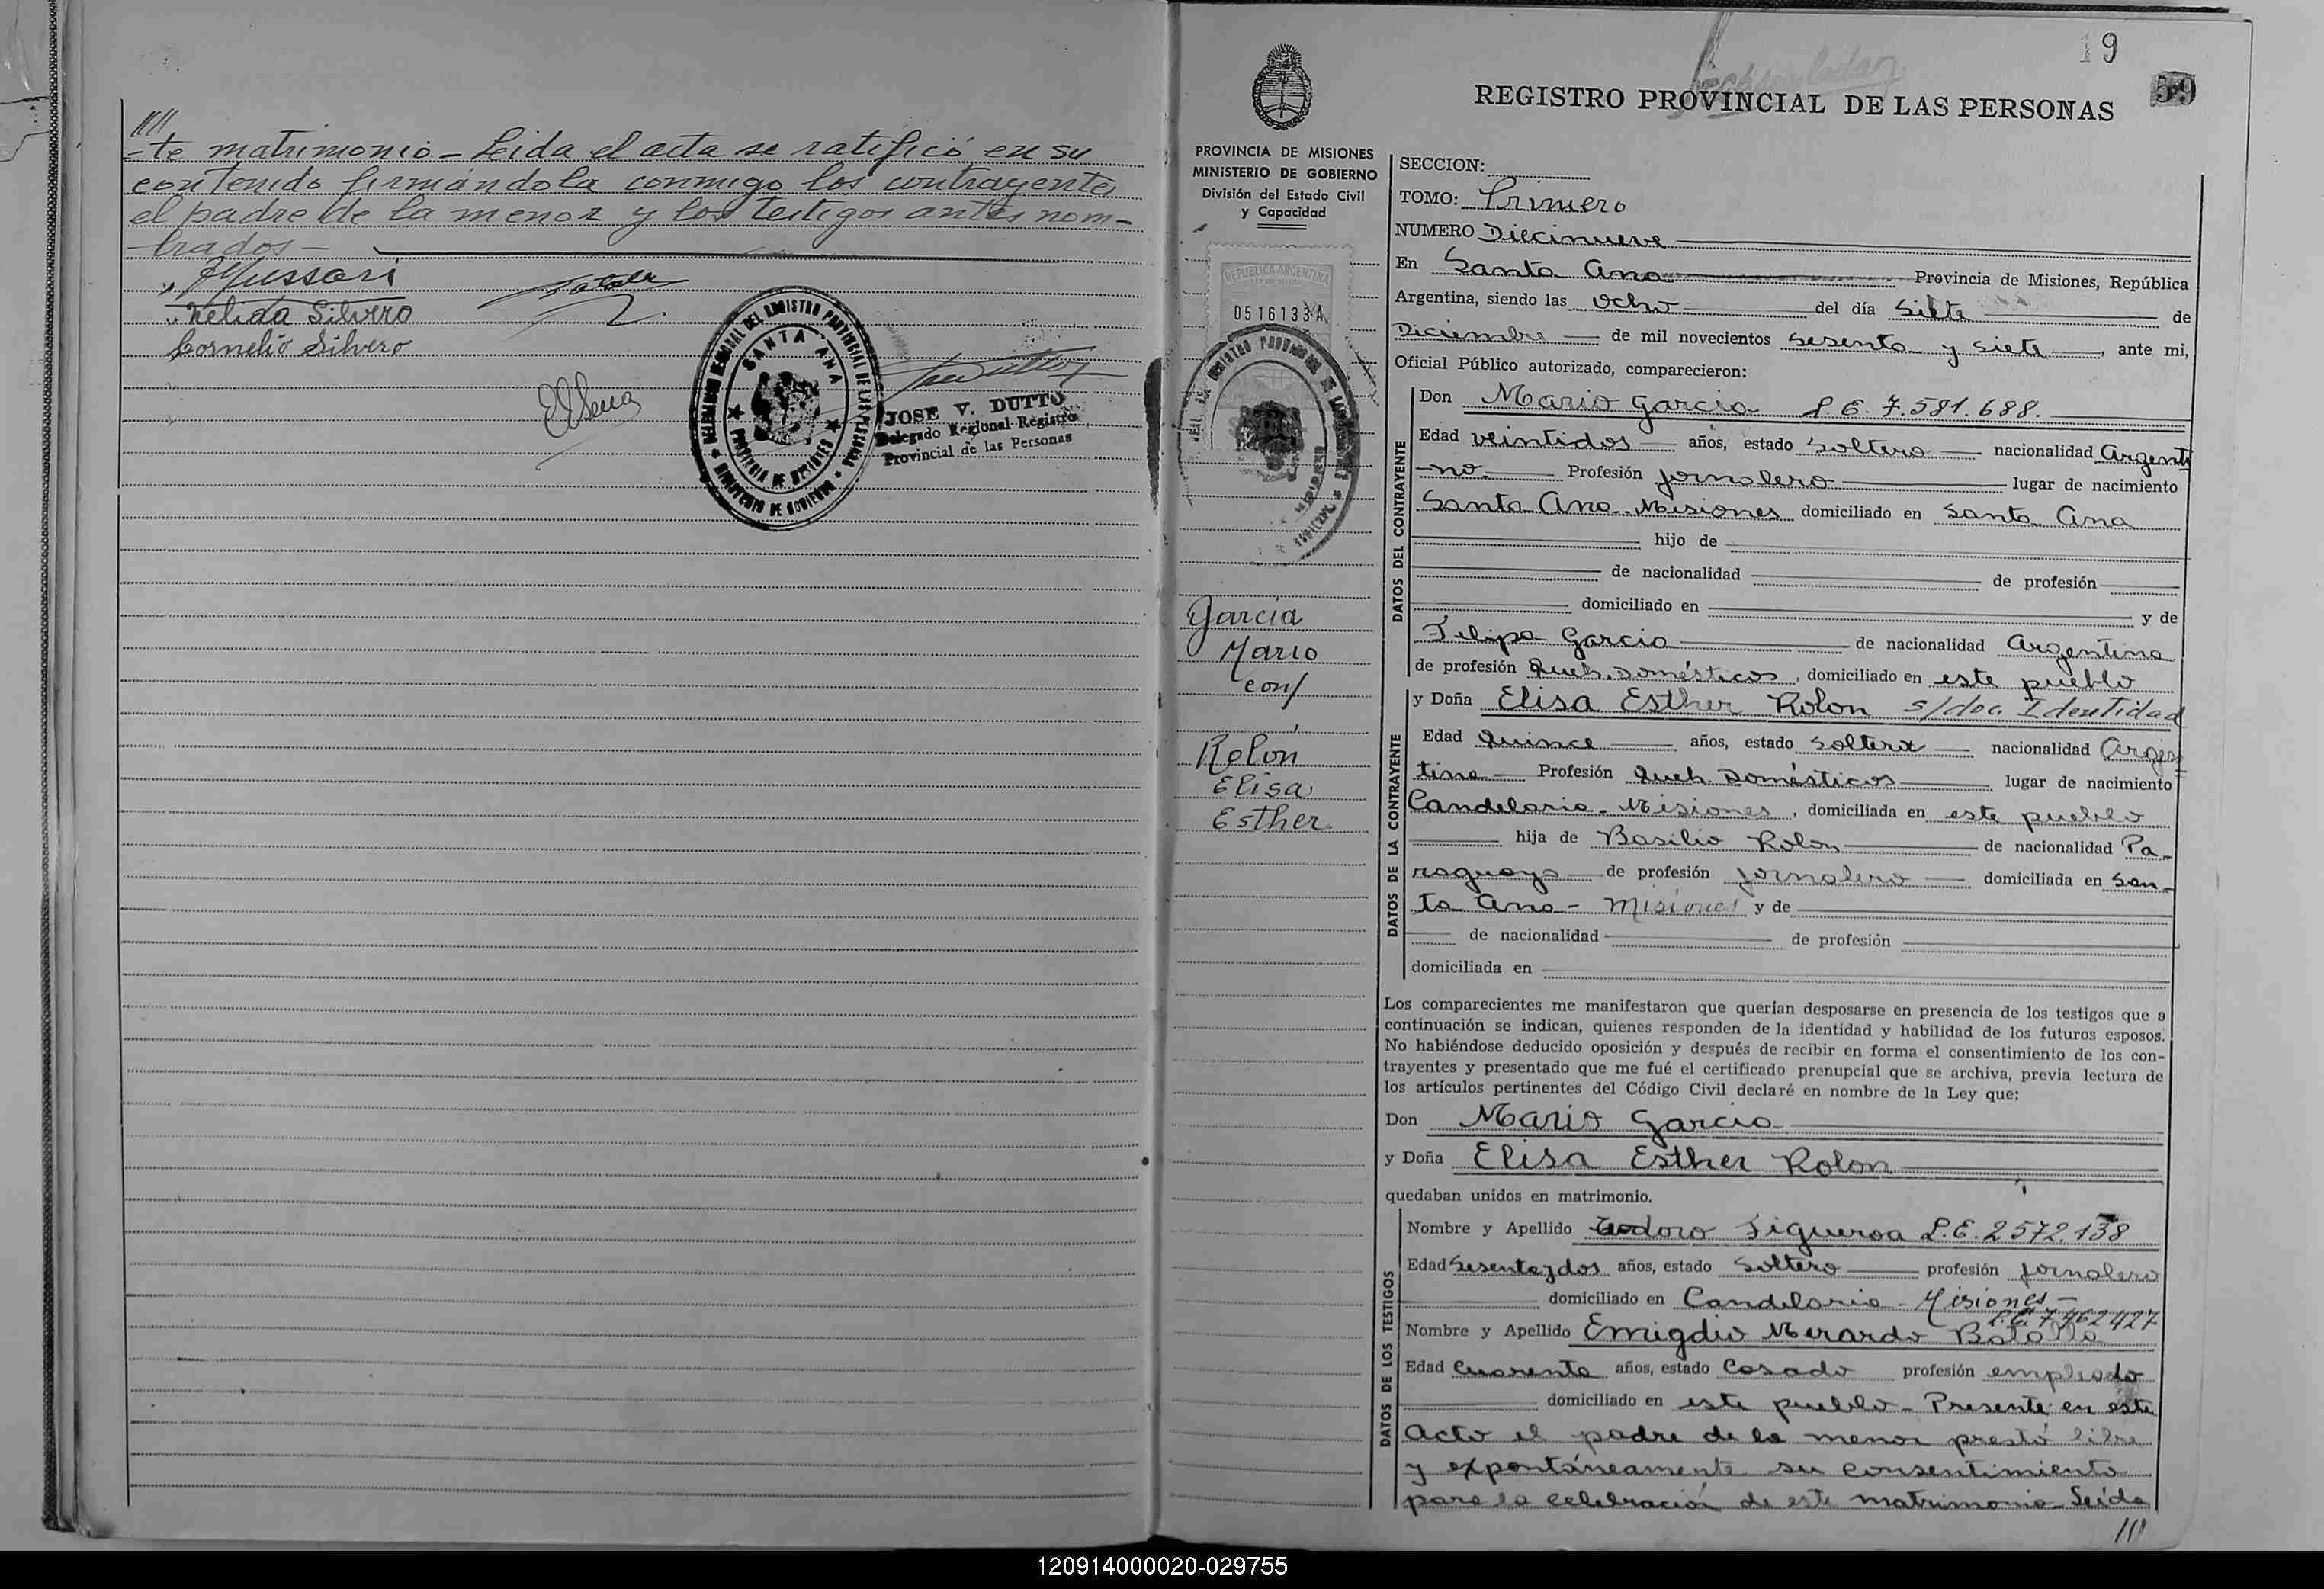 ////
-te matrimonio - Leida el acta se ratificó en su
contenido firmándola conmigo los contrayentes
el padre de la menor y los testigos antes nom-
brados -
Nelida Silvero
Cornelio Silvero
DELEGADO REGIONAL DEL REGISTRO PROVINCIAL DE LAS PERSONAS
SANTA ANA
PROVINCIA DE MISIONES
MINISTERIO DE GOBIERNO
JOSE V. DUTTO
Delegado Regional Registro
Provincial de las Personas
19
59
REGISTRO PROVINCIAL DE LAS PERSONAS
PROVINCIA DE MISIONES
MINISTERIO DE GOBIERNO
División del Estado Civil
y Capacidad
REPUBLICA ARGENTINA
0516133A
García
Mario
con/
Rolón
Elisa
Esther
SECCION:
TOMO: Primero
NUMERO Diecinueve
En Santa Ana Provincia de Misiones, República
Argentina, siendo las ocho del día siete de
Diciembre de mil novecientos sesenta y siete, ante mi,
Oficial Público autorizado, comparecieron:
DATOS DEL CONTRAYENTE
Don Mario Garcia L.E. 7.581.688.
Edad veintidos años, estado soltero nacionalidad Argenti
-no. Profesión jornalero lugar de nacimiento
Santa Ana - Misiones domiciliado en Santa Ana
hijo de
de nacionalidad de profesión
domiciliado en y de
Felipa Garcia de nacionalidad Argentina
de profesión Queh. Domésticos, domiciliado en este pueblo
DATOS DE LA CONTRAYENTE
y Doña Elisa Esther Rolon s/doc. Identidad
Edad quince años, estado soltera nacionalidad Argen
tina Profesión Queh. Domésticos lugar de nacimiento
Candelaria - Misiones, domiciliada en este pueblo
hija de Basilio Rolon de nacionalidad Pa-
raguaya de profesión jornalero domiciliada en San-
ta Ana - Misiones y de
de nacionalidad de profesión
domiciliada en
Los comparecientes me manifestaron que querían desposarse en presencia de los testigos que a
continuación se indican, quienes responden de la identidad y habilidad de los futuros esposos.
No habiéndose deducido oposición y después de recibir en forma el consentimiento de los con-
trayentes y presentado que me fué el certificado prenupcial que se archiva, previa lectura de
los artículos pertinentes del Código Civil declaré en nombre de la Ley que:
Don Mario Garcia
y Doña Elisa Esther Rolon
quedaban unidos en matrimonio.
DATOS DE LOS TESTIGOS
Nombre y Apellido Teodoro Figueroa L.E. 2572.138
Edad Sesentaydos años, estado soltero profesión jornalero
domiciliado en Candelaria - Misiones -
L.E. 7.462427
Nombre y Apellido Emigdio Merardo Batalla
Edad Cuarenta años, estado Casado profesión empleado
domiciliado en este pueblo - Presente en este
Acto el padre de la menor prestó libre
y expontáneamente su consentimiento
para la celebración de este matrimonio - Leída
///
120914000020-029755